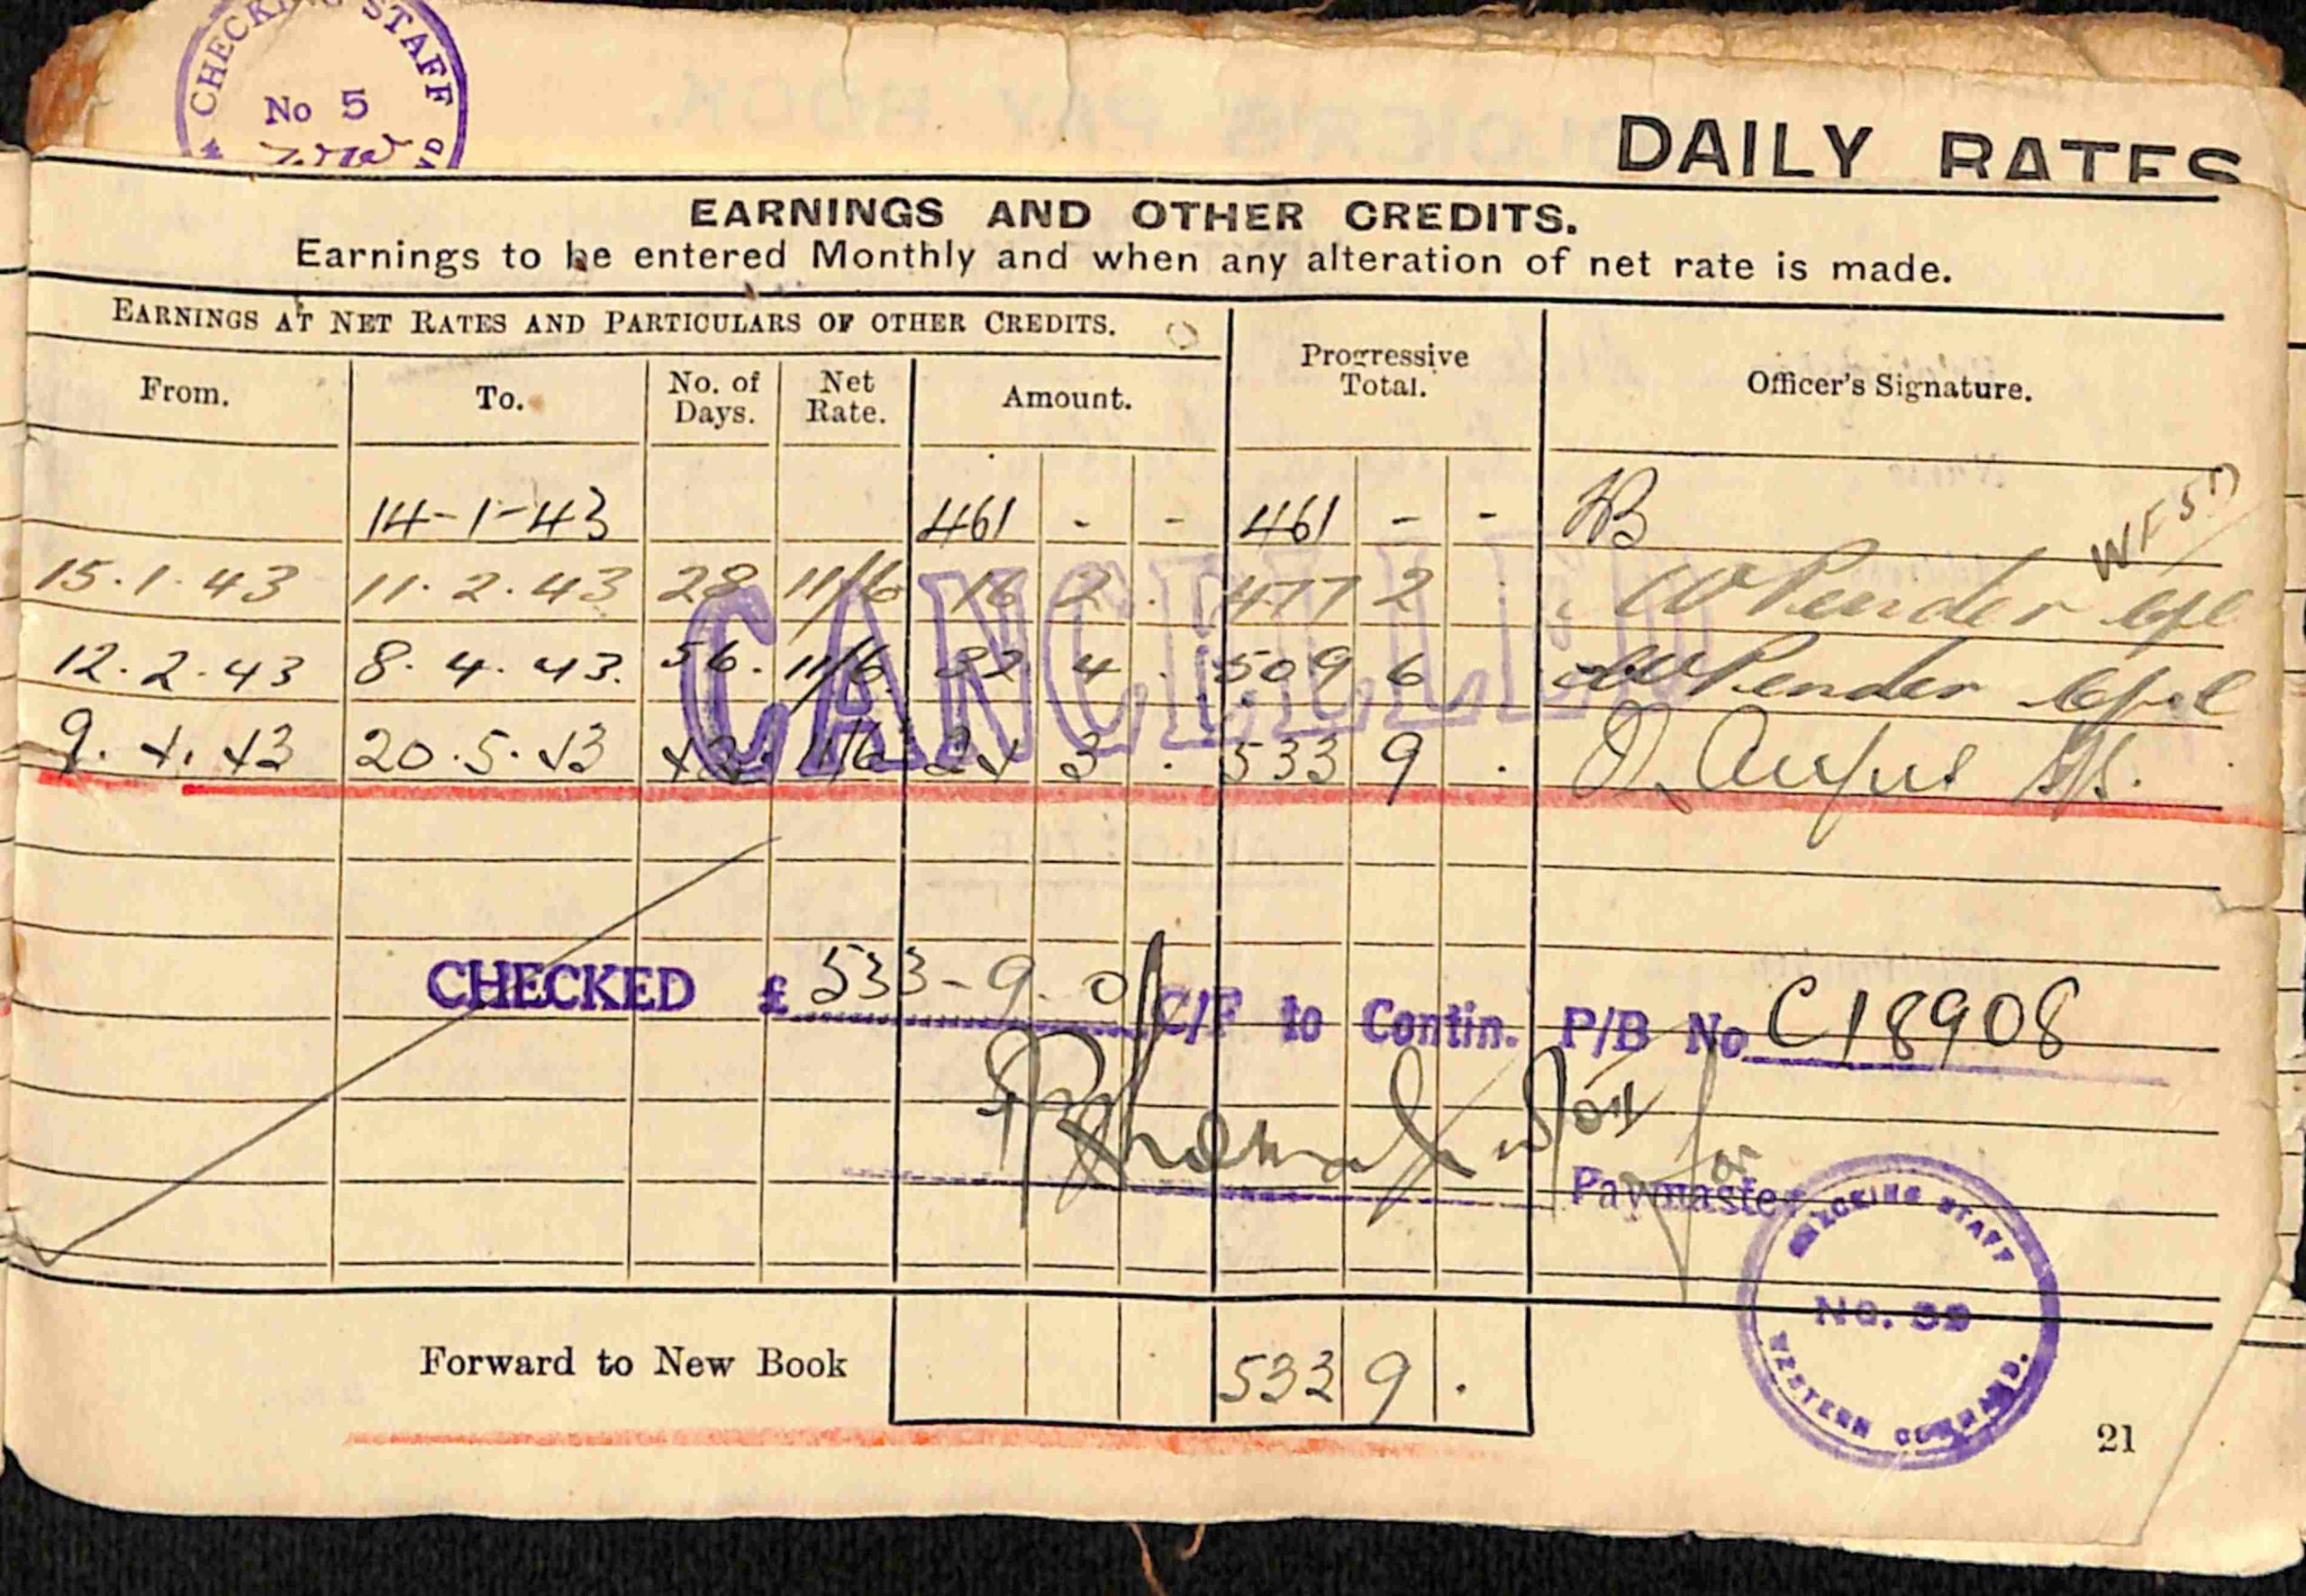 CHECKING STAFF
No 5
DAILY RATES
EARNINGS AND OTHER CREDITS.
Earnings to be entered Monthly and when any alteration of net rate is made.
EARNINGS AT NET RATES AND PARTICULARS OF OTHER CREDITS.
Progressive Total.
Officer's Signature.
From. To. No. of Days. Net Rate. Amount.
14-1-43 461 - - 461 - -
15.1.43 11.2.43 28 11/6 16 2 . 477 2 . W Pender Cpl
12.2.43 8.4.43. 56. 11/6. 32 4 . 509 6 W Pender Cpl
9.4.43 20.5.43 42. 11/6 24 3 . 533 9 .
CANCELLED
CHECKED £ 533-9-0 C/F to Contin. P/B No C18908
for
Paymaster
CHECKING STAFF
NO. 39
WESTERN COMMAND.
Forward to New Book 533 9 .
21